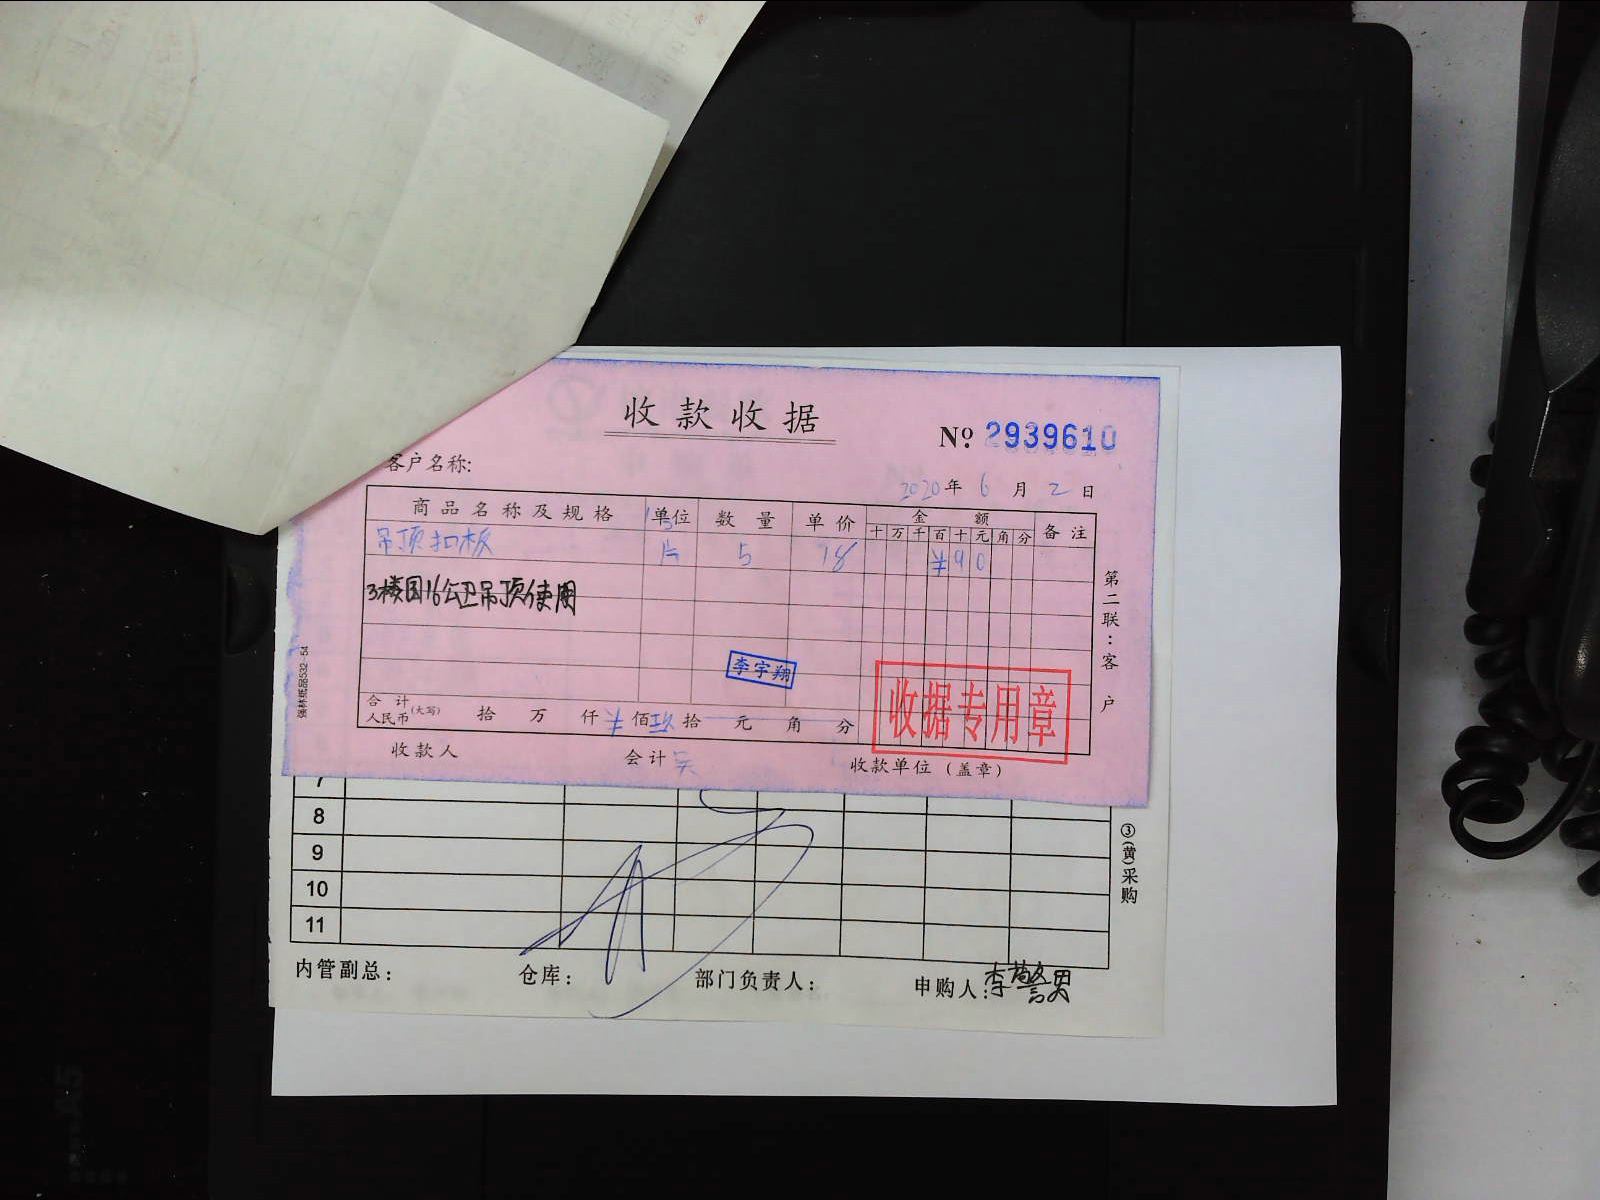 收款收据
№ 2939610
客户名称:
2020年 6 月 2 日
商品名称及规格 单位 数量 单价 金额 备注
十 万 千 百 十 元 角 分
吊顶扣板 片 5 18 ¥ 9 0
3楼国16公卫吊顶使用
李宇翔
合计
人民币(大写) 拾 万 仟 ¥ 佰 玖 拾 元 角 分
收据专用章
收款人 会计 收款单位(盖章)
第二联:客户
强林纸品532-54
7
8
9
10
11
③(黄)采购
内管副总: 仓库: 部门负责人: 申购人:李警男